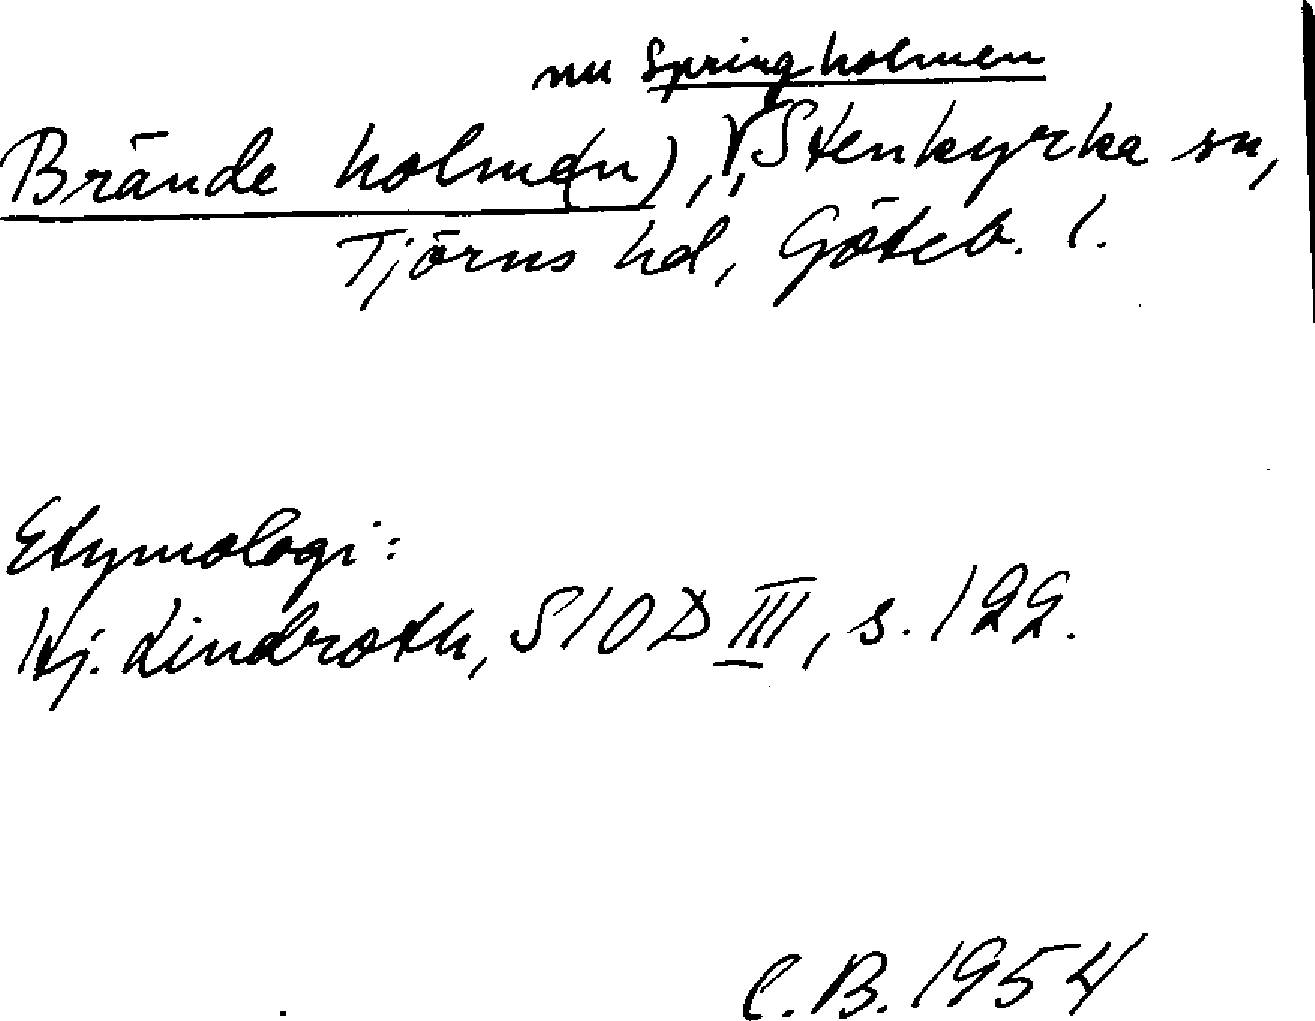 nu Springholmen
Brände holme(n), Stenkyrka sn,
Tjörns hd, Göteb. l.
Etymologi:
Hj. Lindroth, SIOD III, s. 122.
C.B. 1954